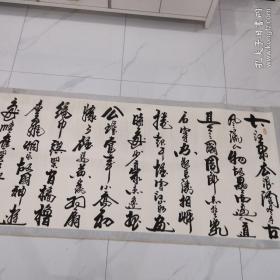 大江東去浪淘盡千古
風流人物故壘西邊人道
是三國周郎赤壁亂
石穿空驚濤拍岸
捲起千堆雪江山如畫
一時多少豪傑遙想
公瑾當年小喬初
嫁了雄姿英發羽扇
綸巾談笑間檣櫓
灰飛煙滅故國神遊
多情應笑我
孔夫子旧书网